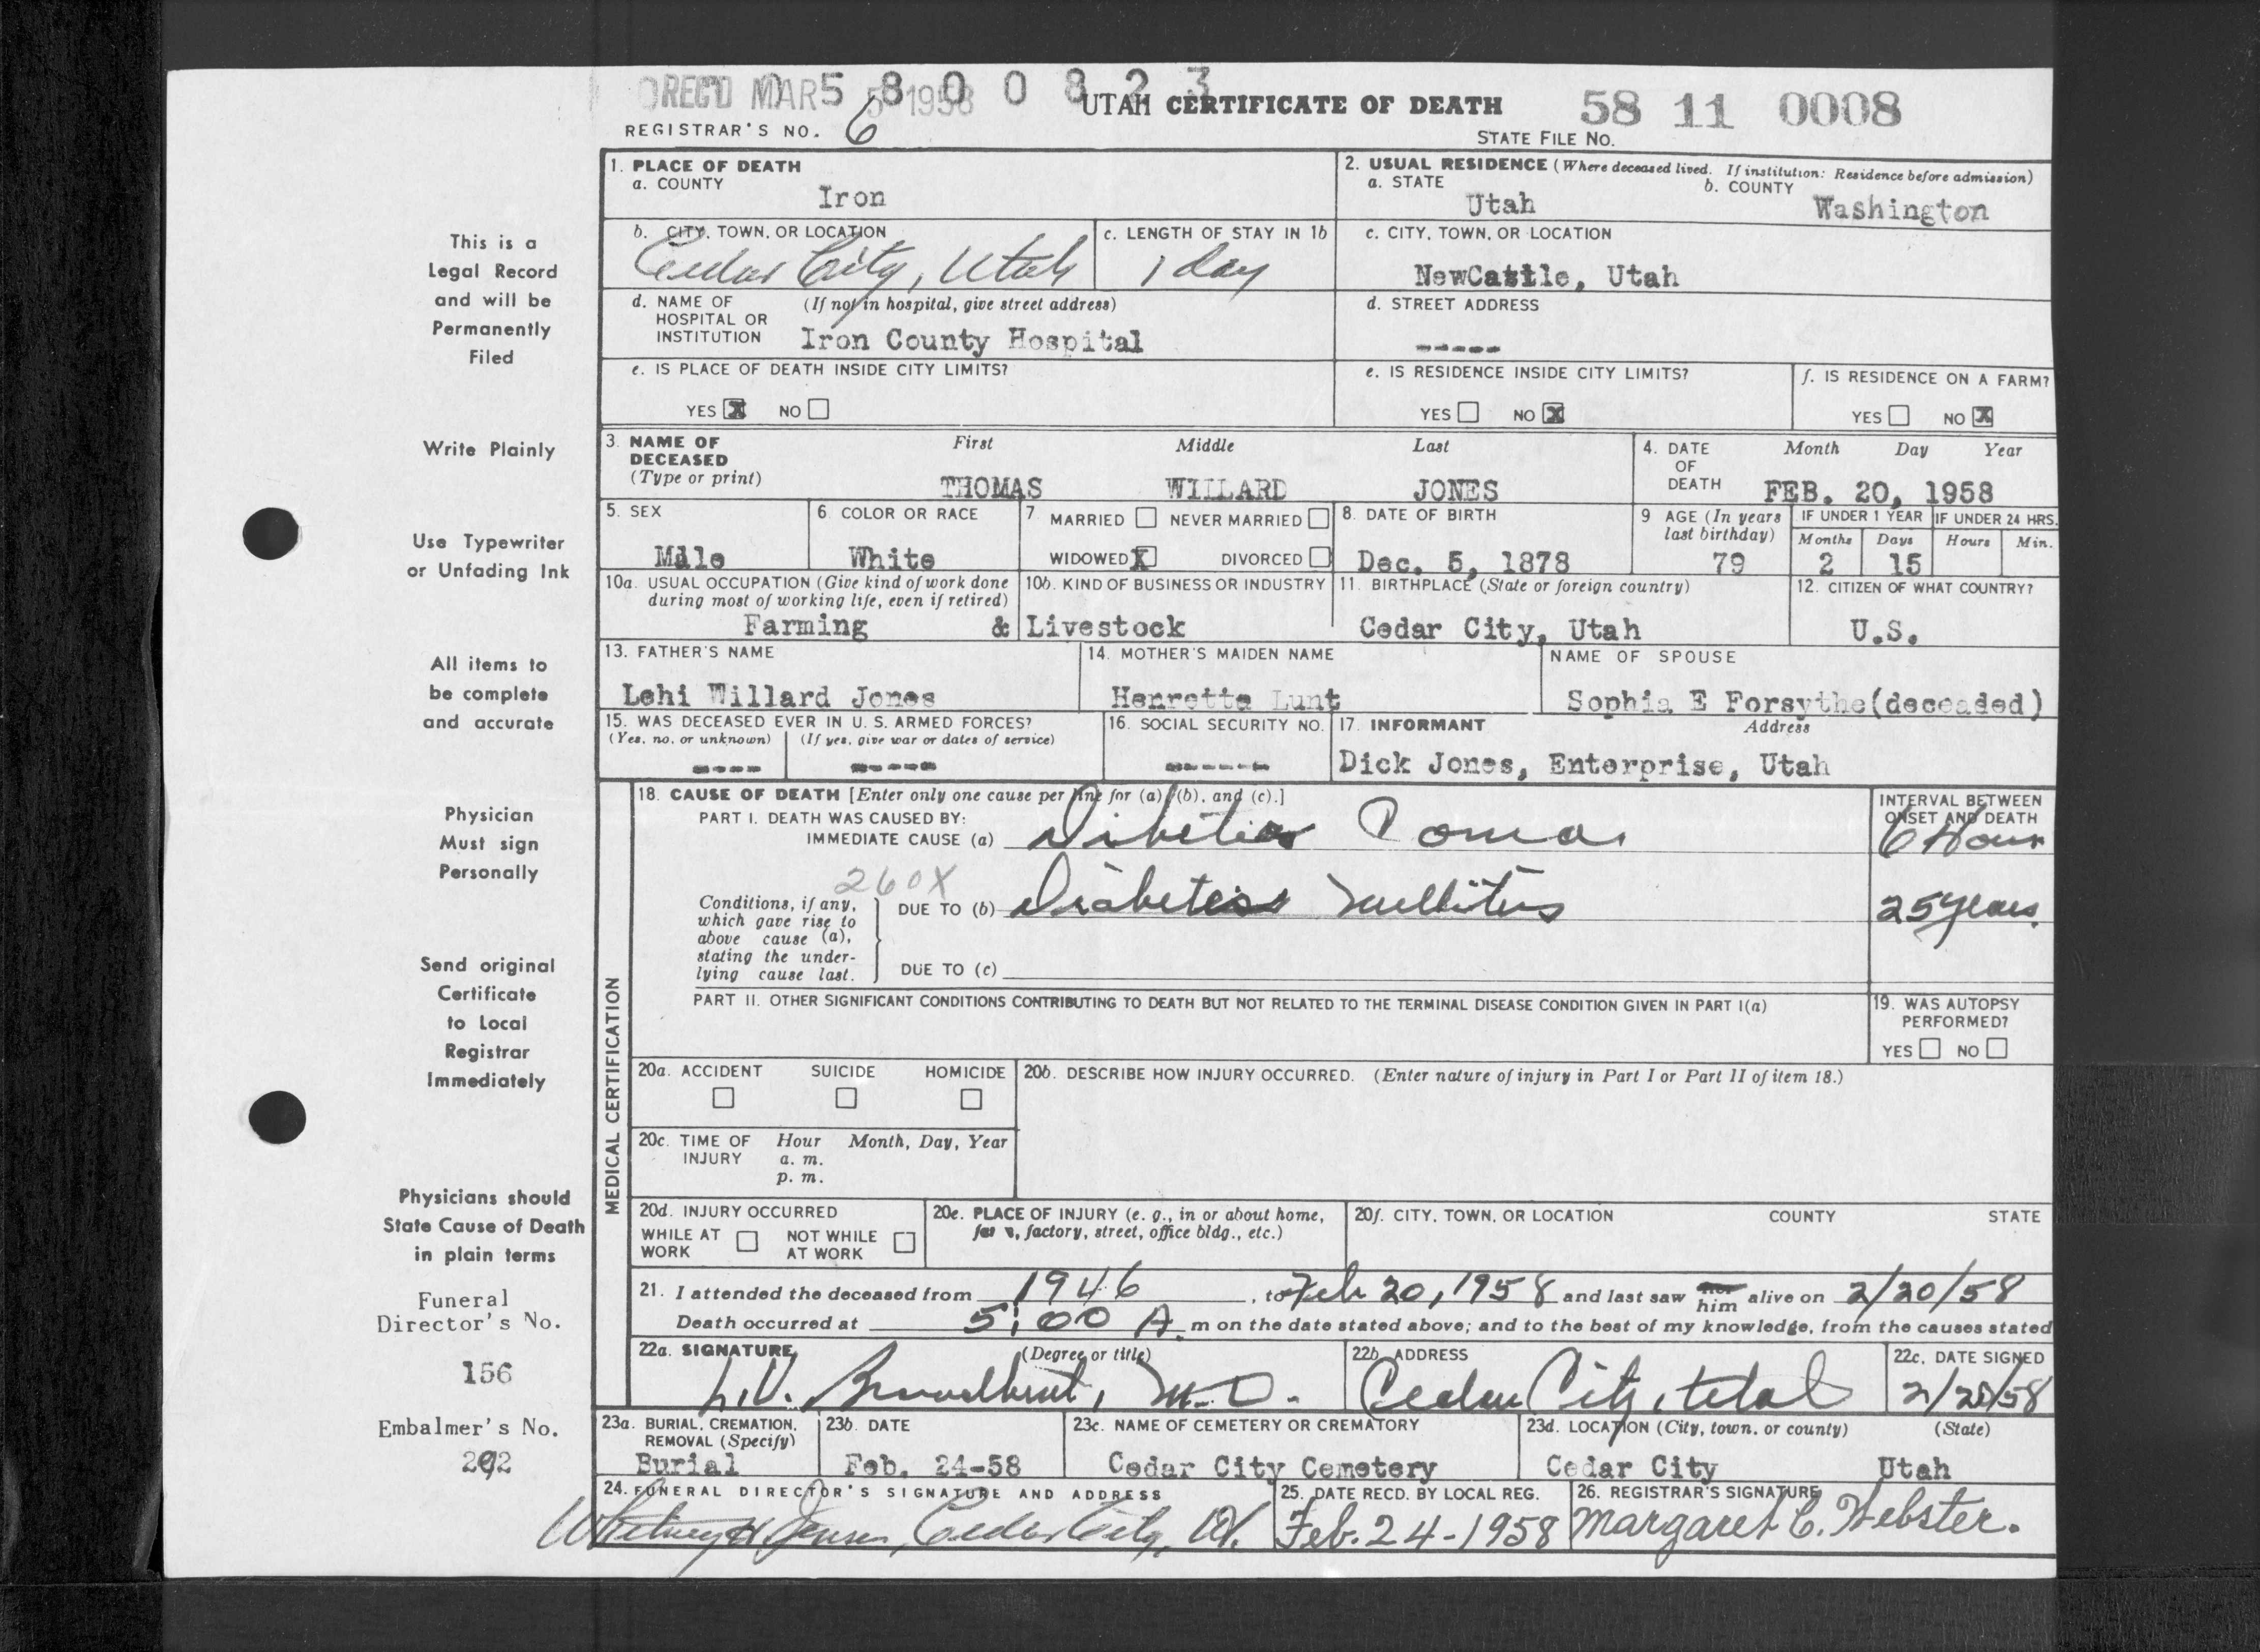 REC'D MAR 5 1958
5 8 0 0 8 2 3
UTAH CERTIFICATE OF DEATH
58 11 0008
REGISTRAR'S NO. 6
STATE FILE NO.
1. PLACE OF DEATH
a. COUNTY
Iron
2. USUAL RESIDENCE (Where deceased lived. If institution: Residence before admission)
a. STATE
Utah
b. COUNTY
Washington
b. CITY, TOWN, OR LOCATION
Cedar City, Utah
c. LENGTH OF STAY IN 1b
1 day
c. CITY, TOWN, OR LOCATION
NewCastle, Utah
d. NAME OF HOSPITAL OR INSTITUTION
(If not in hospital, give street address)
Iron County Hospital
d. STREET ADDRESS
-----
e. IS PLACE OF DEATH INSIDE CITY LIMITS?
YES X NO
e. IS RESIDENCE INSIDE CITY LIMITS?
YES NO X
f. IS RESIDENCE ON A FARM?
YES NO X
3. NAME OF DECEASED (Type or print)
First Middle Last
THOMAS WILLARD JONES
4. DATE OF DEATH
Month Day Year
FEB. 20, 1958
5. SEX
Male
6. COLOR OR RACE
White
7. MARRIED NEVER MARRIED
WIDOWED X DIVORCED
8. DATE OF BIRTH
Dec. 5, 1878
9 AGE (In years last birthday)
79
IF UNDER 1 YEAR
Months Days
2 15
IF UNDER 24 HRS.
Hours Min.
10a. USUAL OCCUPATION (Give kind of work done during most of working life, even if retired)
Farming &
10b. KIND OF BUSINESS OR INDUSTRY
Livestock
11. BIRTHPLACE (State or foreign country)
Cedar City, Utah
12. CITIZEN OF WHAT COUNTRY?
U.S.
13. FATHER'S NAME
Lehi Willard Jones
14. MOTHER'S MAIDEN NAME
Henretta Lunt
NAME OF SPOUSE
Sophia E Forsythe(deceased)
15. WAS DECEASED EVER IN U. S. ARMED FORCES?
(Yes, no, or unknown) (If yes, give war or dates of service)
---- -----
16. SOCIAL SECURITY NO.
------
17. INFORMANT Address
Dick Jones, Enterprise, Utah
MEDICAL CERTIFICATION
18. CAUSE OF DEATH [Enter only one cause per line for (a), (b), and (c).]
PART I. DEATH WAS CAUSED BY:
IMMEDIATE CAUSE (a) Coma
INTERVAL BETWEEN ONSET AND DEATH
6 Hour
260X
Conditions, if any, which gave rise to above cause (a), stating the underlying cause last.
DUE TO (b) Diabetes Mellitus
25 years
DUE TO (c)
PART II. OTHER SIGNIFICANT CONDITIONS CONTRIBUTING TO DEATH BUT NOT RELATED TO THE TERMINAL DISEASE CONDITION GIVEN IN PART I(a)
19. WAS AUTOPSY PERFORMED?
YES NO
20a. ACCIDENT SUICIDE HOMICIDE
20b. DESCRIBE HOW INJURY OCCURRED. (Enter nature of injury in Part I or Part II of item 18.)
20c. TIME OF INJURY
Hour Month, Day, Year
a. m.
p. m.
20d. INJURY OCCURRED
WHILE AT WORK NOT WHILE AT WORK
20e. PLACE OF INJURY (e. g., in or about home, factory, street, office bldg., etc.)
20f. CITY, TOWN, OR LOCATION COUNTY STATE
21. I attended the deceased from 1946, to Feb 20, 1958 and last saw her him alive on 2/20/58
Death occurred at 5:00 A. m on the date stated above; and to the best of my knowledge, from the causes stated
22a. SIGNATURE (Degree or title)
L.V. Broadbent, M.D.
22b. ADDRESS
Cedar City, Utah
22c. DATE SIGNED
2/20/58
23a. BURIAL, CREMATION, REMOVAL (Specify)
Burial
23b. DATE
Feb. 24-58
23c. NAME OF CEMETERY OR CREMATORY
Cedar City Cemetery
23d. LOCATION (City, town, or county) (State)
Cedar City Utah
24. FUNERAL DIRECTOR'S SIGNATURE AND ADDRESS
Cedar City, Ut.
25. DATE RECD. BY LOCAL REG.
Feb. 24-1958
26. REGISTRAR'S SIGNATURE
Margaret C. Webster.
This is a
Legal Record
and will be
Permanently
Filed
Write Plainly
Use Typewriter
or Unfading Ink
All items to
be complete
and accurate
Physician
Must sign
Personally
Send original
Certificate
to Local
Registrar
Immediately
Physicians should
State Cause of Death
in plain terms
Funeral
Director's No.
156
Embalmer's No.